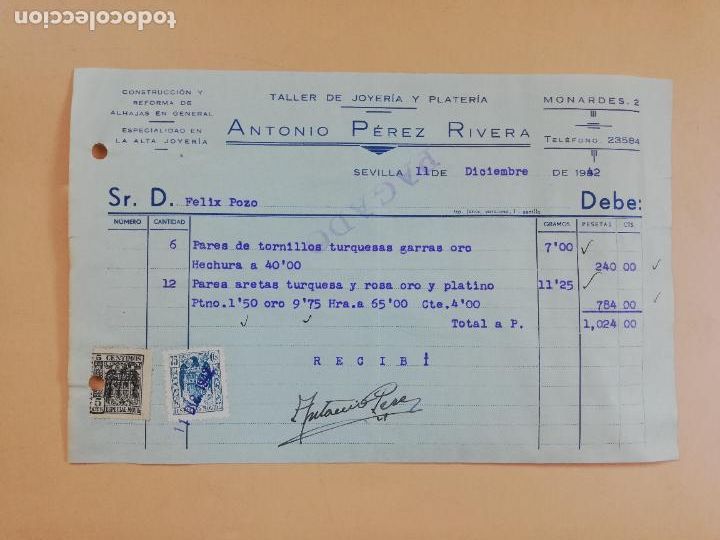 todocoleccion
CONSTRUCCIÓN Y
REFORMA DE
ALHAJAS EN GENERAL
ESPECIALIDAD EN
LA ALTA JOYERÍA
TALLER DE JOYERÍA Y PLATERÍA
ANTONIO PÉREZ RIVERA
MONARDES, 2
TELÉFONO 23584
SEVILLA 11 DE Diciembre DE 1942
PAGADO
Sr. D. Felix Pozo Debe:
NÚMERO CANTIDAD GRAMOS PESETAS CTS.
6 Pares de tornillos turquesas garras oro 7'00
Hechura a 40'00 240 00
12 Pares aretas turquesa y rosa oro y platino 11'25
Ptno.1'50 oro 9'75 Hra.a 65'00 Cte.4'00 784 00
Total a P. 1,024 00
RECIBÍ
5 CENTIMOS
ESPECIAL MOVIL
75 CTS
11 DIC 1942
Antonio Perez